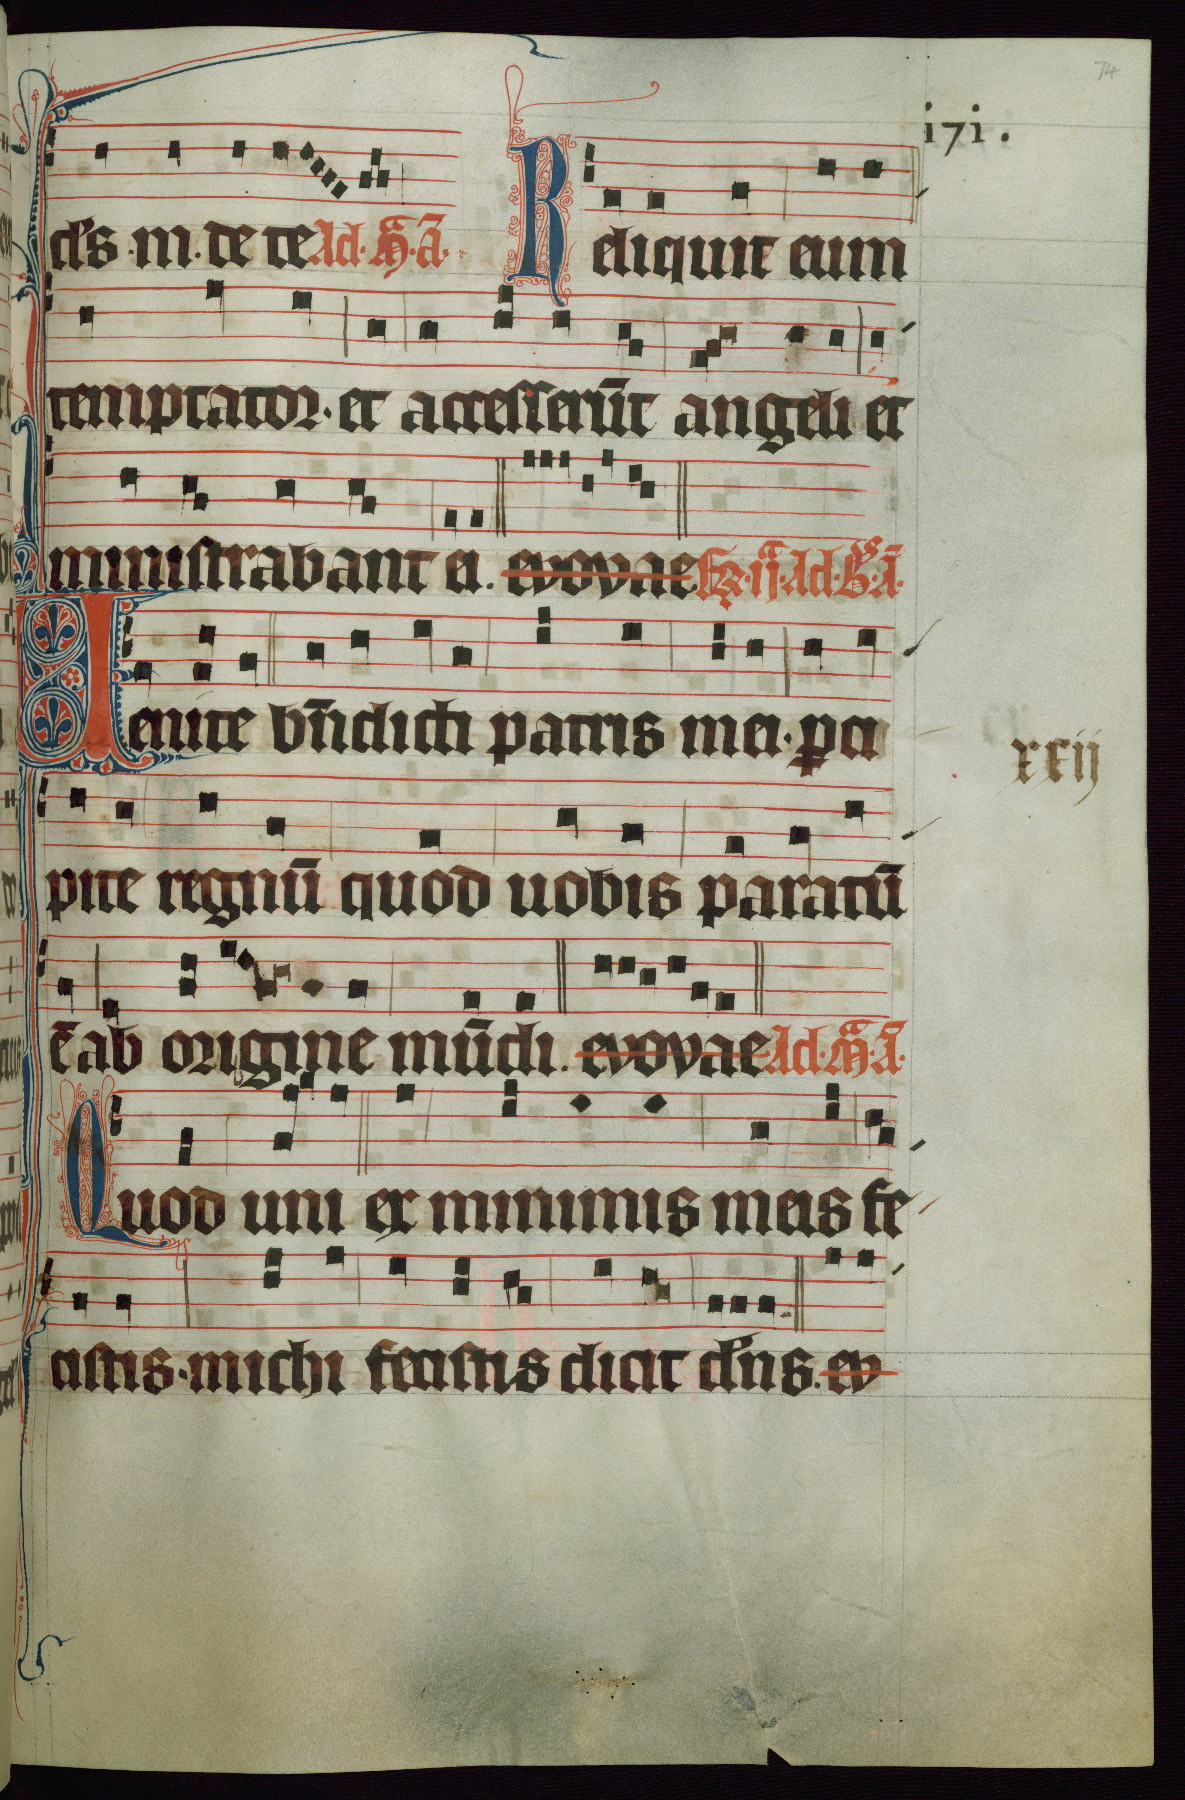 74
171.
d̄s · in · de te Ad · M̄ · Ā · Reliquit eum
temptator · et accesserūt angeli et
ministrabant ei . euouae Fr · ij · Ad · B̄ · Ā ·
Uenite bn̄dicti patris mei · p̱ci
xxij
pite regnū quod uobis paratū
ē ab origine mūdi . euouae Ad · M̄ · Ā ·
Quod uni ex minimis meis fe
cistis · michi fecistis dicit dn̄s . eu